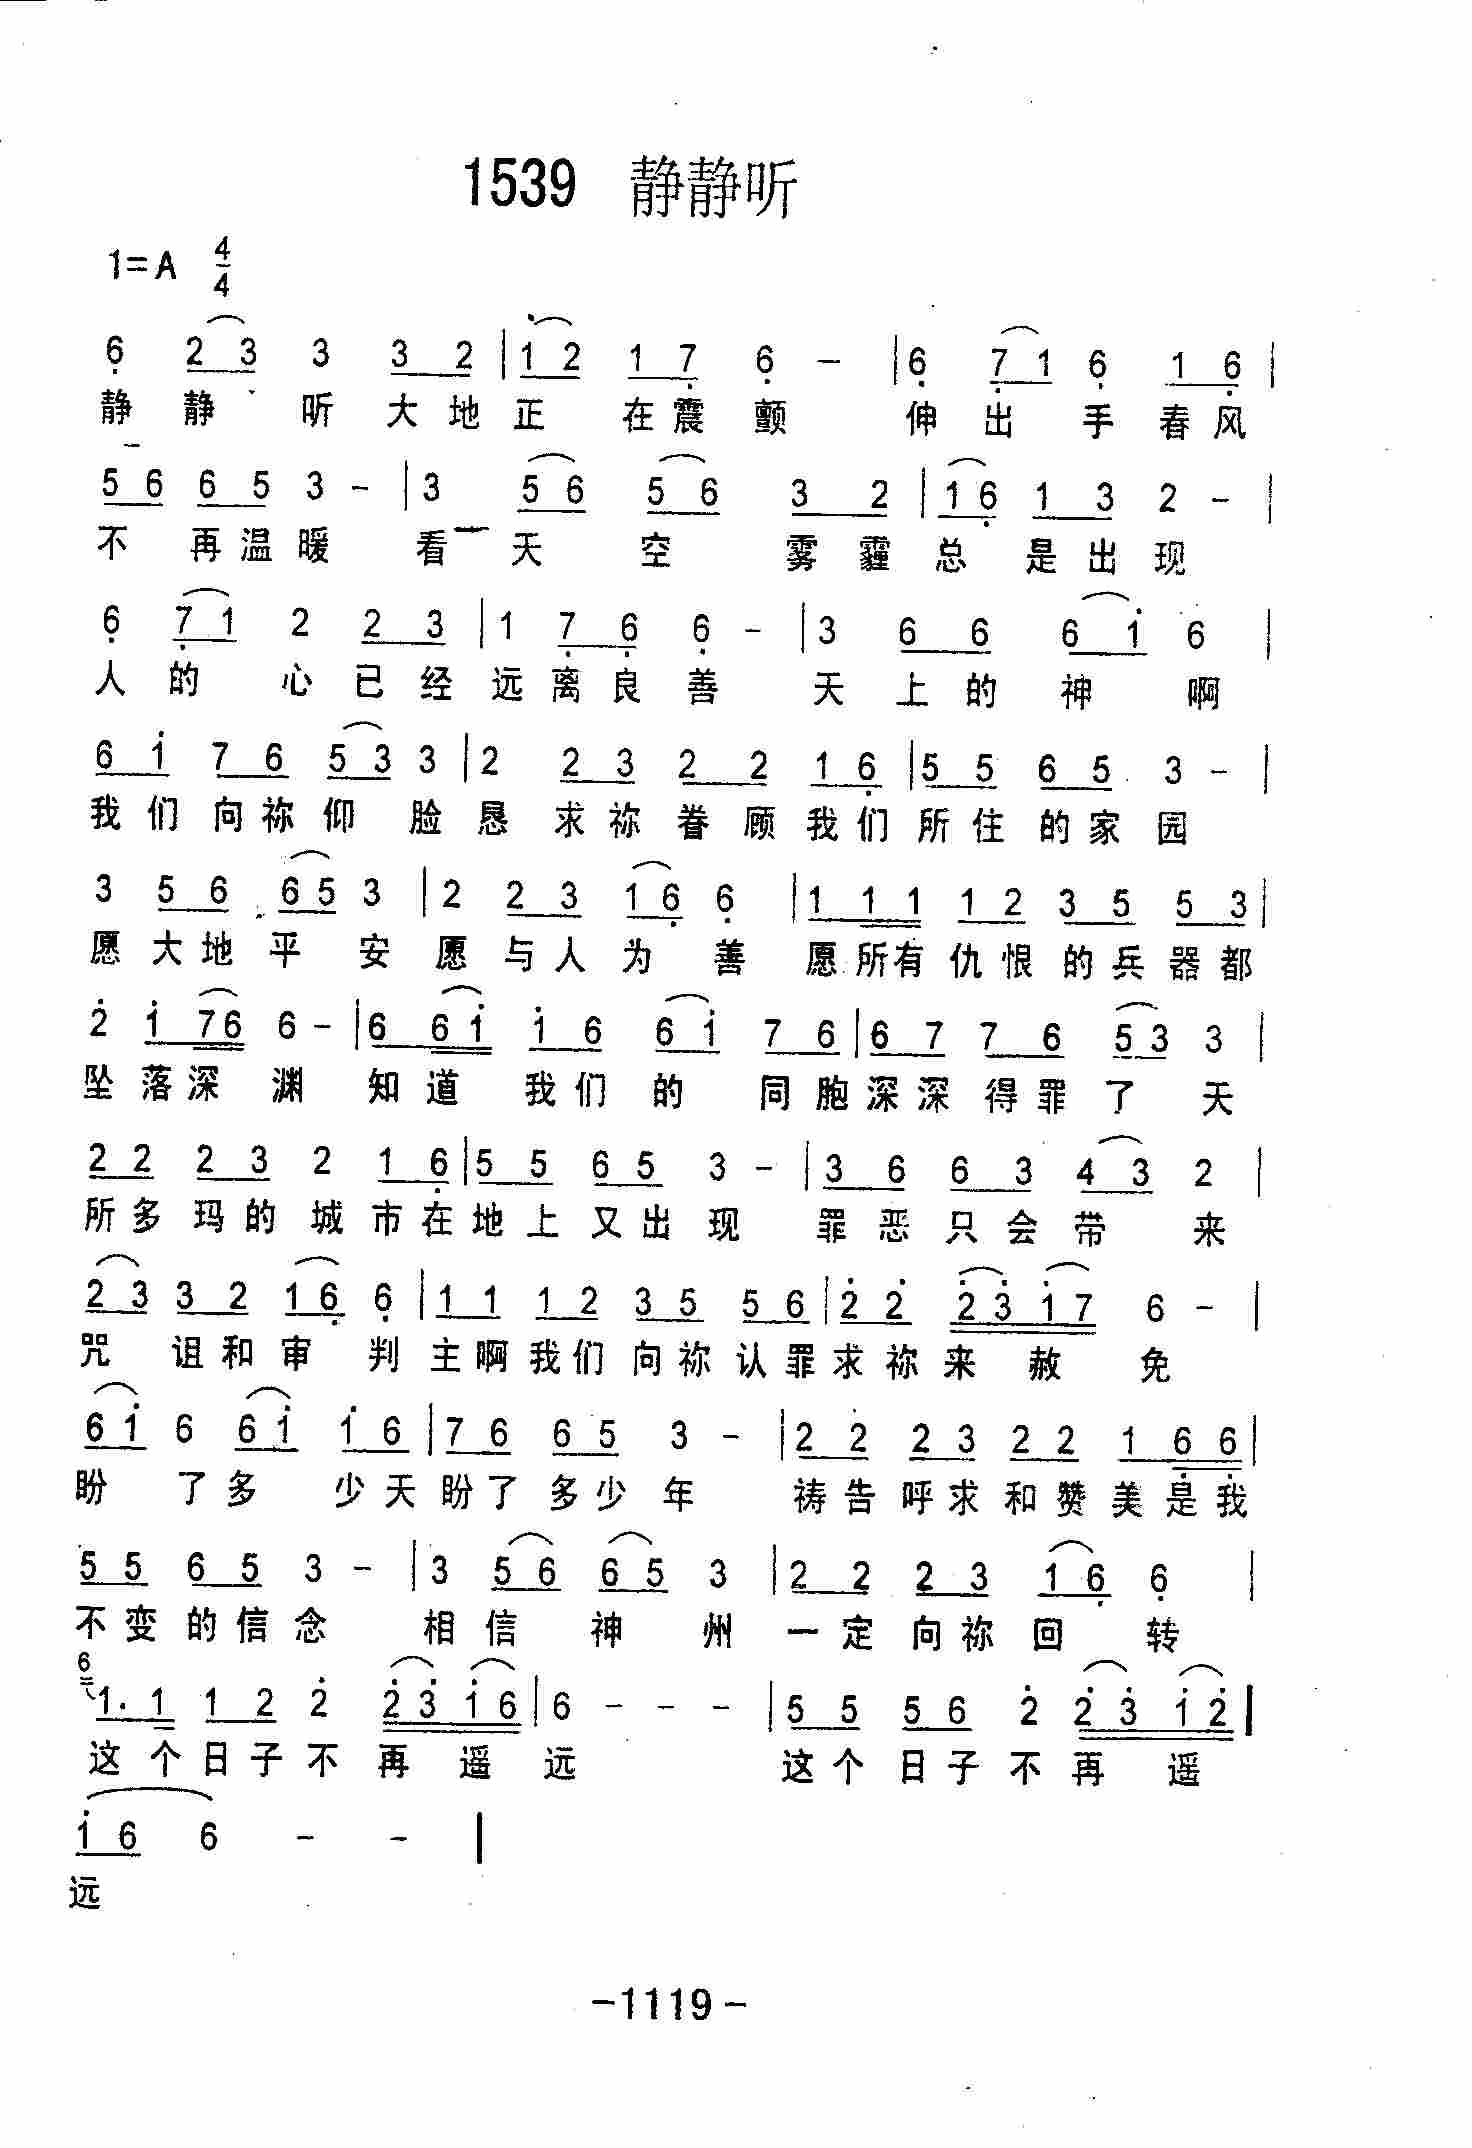 1539 静静听
1=A 4/4
6 2 3 3 3 2 | 1 2 1 7 6 - | 6 7 1 6 1 6 |
静 静 听 大 地 正 在 震 颤 伸 出 手 春 风
5 6 6 5 3 - | 3 5 6 5 6 3 2 | 1 6 1 3 2 - |
不 再 温 暖 看 天 空 雾 霾 总 是 出 现
6 7 1 2 2 3 | 1 7 6 6 - | 3 6 6 6 1 6 |
人 的 心 已 经 远 离 良 善 天 上 的 神 啊
6 1 7 6 5 3 3 | 2 2 3 2 2 1 6 | 5 5 6 5 3 - |
我 们 向 祢 仰 脸 恳 求 祢 眷 顾 我 们 所 住 的 家 园
3 5 6 6 5 3 | 2 2 3 1 6 6 | 1 1 1 1 2 3 5 5 3 |
愿 大 地 平 安 愿 与 人 为 善 愿 所 有 仇 恨 的 兵 器 都
2 1 7 6 6 - | 6 6 1 1 6 6 1 7 6 | 6 7 7 6 5 3 3 |
坠 落 深 渊 知 道 我 们 的 同 胞 深 深 得 罪 了 天
2 2 2 3 2 1 6 | 5 5 6 5 3 - | 3 6 6 3 4 3 2 |
所 多 玛 的 城 市 在 地 上 又 出 现 罪 恶 只 会 带 来
2 3 3 2 1 6 6 | 1 1 1 2 3 5 5 6 | 2 2 2 3 1 7 6 - |
咒 诅 和 审 判 主 啊 我 们 向 祢 认 罪 求 祢 来 赦 免
6 1 6 6 1 1 6 | 7 6 6 5 3 - | 2 2 2 3 2 2 1 6 6 |
盼 了 多 少 天 盼 了 多 少 年 祷 告 呼 求 和 赞 美 是 我
5 5 6 5 3 - | 3 5 6 6 5 3 | 2 2 2 3 1 6 6 |
不 变 的 信 念 相 信 神 州 一 定 向 祢 回 转
6
1. 1 1 2 2 2 3 1 6 | 6 - - - | 5 5 5 6 2 2 3 1 2 |
这 个 日 子 不 再 遥 远 这 个 日 子 不 再 遥
1 6 6 - - |
远
-1119-